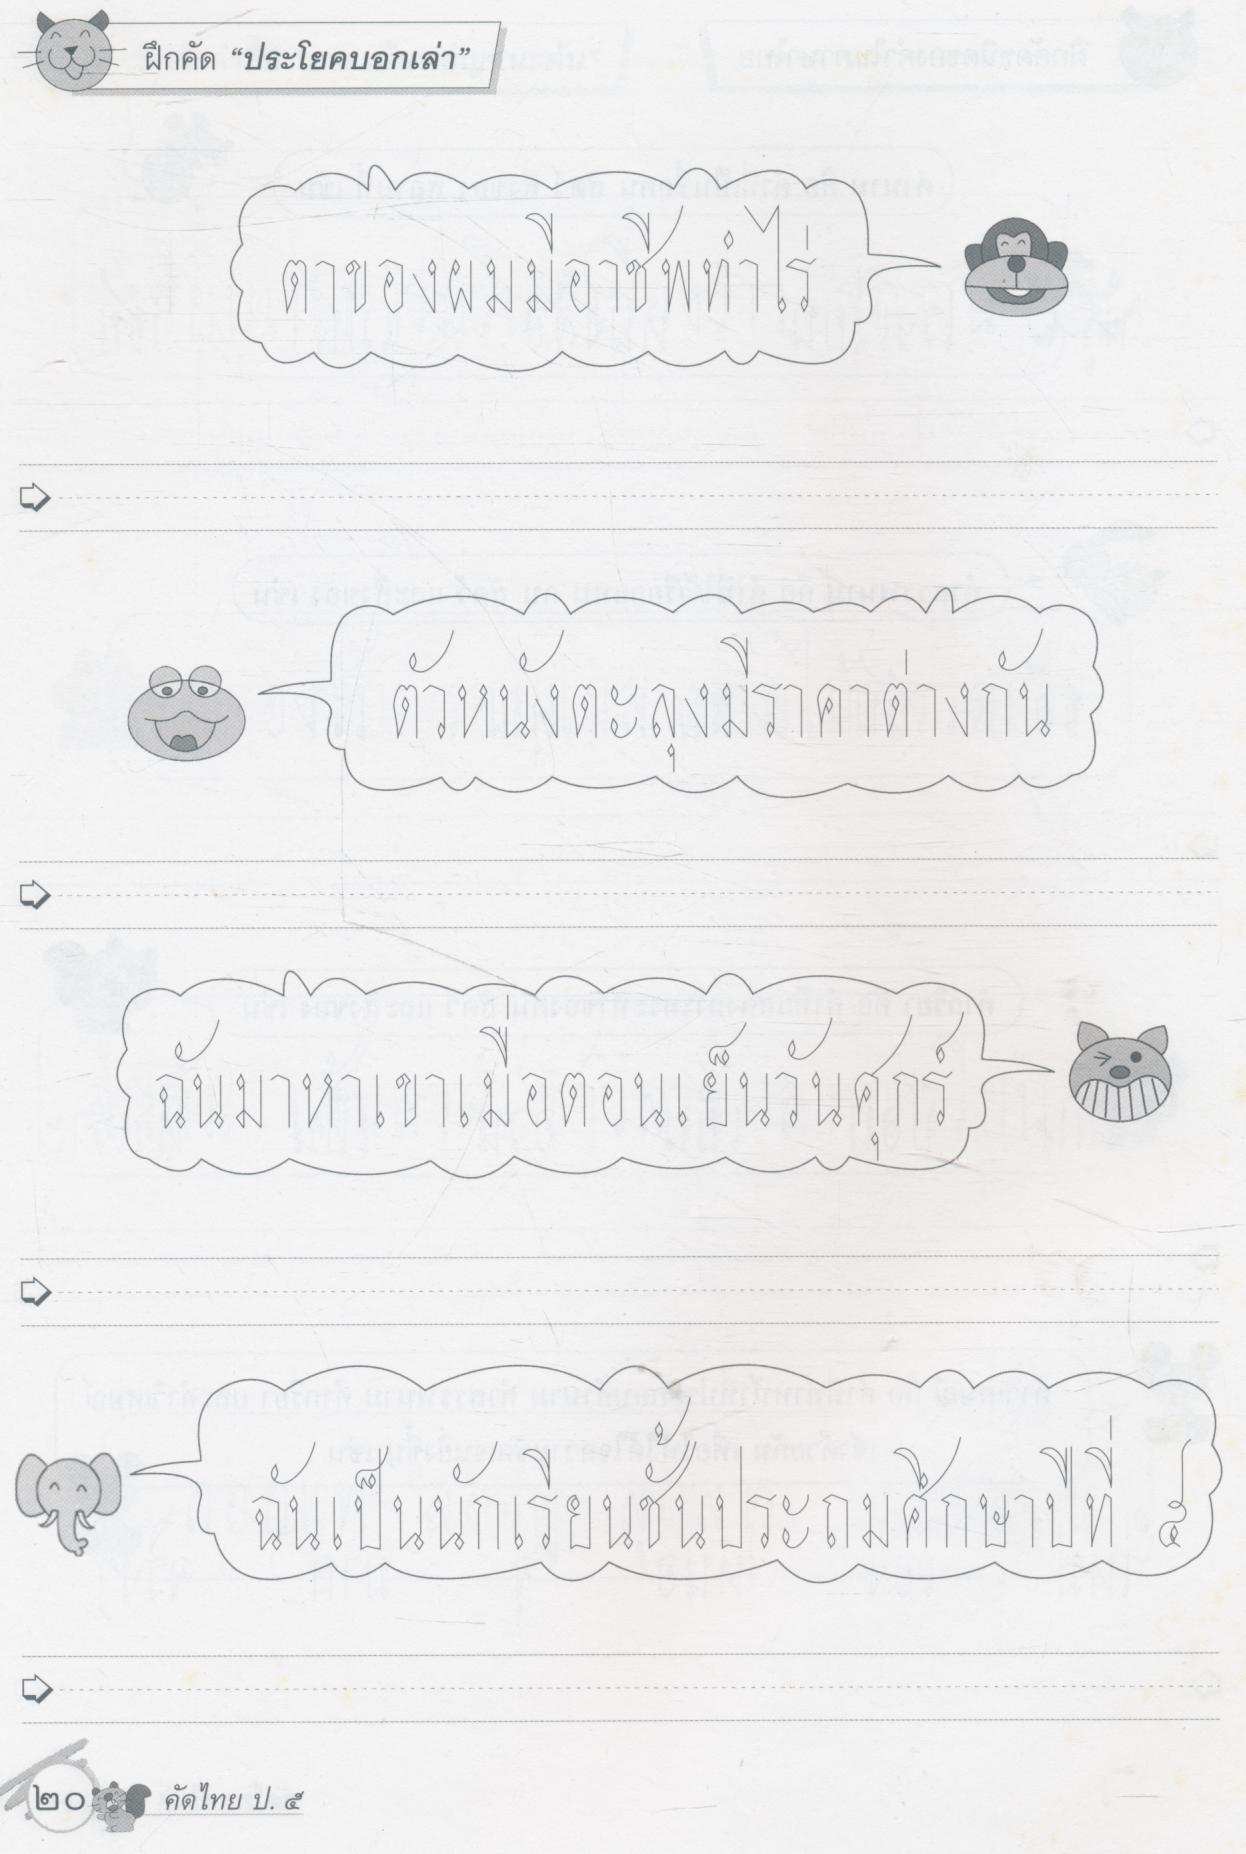 ฝึกคัด “ประโยคบอกเล่า”
ตาของผมมีอาชีพทำไร่
ตัวหนังตะลุงมีราคาต่างกัน
ฉันมาหาเขาเมื่อตอนเย็นวันศุกร์
ฉันเป็นนักเรียนชั้นประถมศึกษาปีที่ ๕
๒๐
คัดไทย ป. ๕